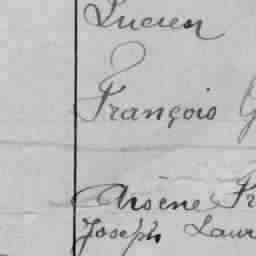 Lucien
François
Arsène
Joseph Laur